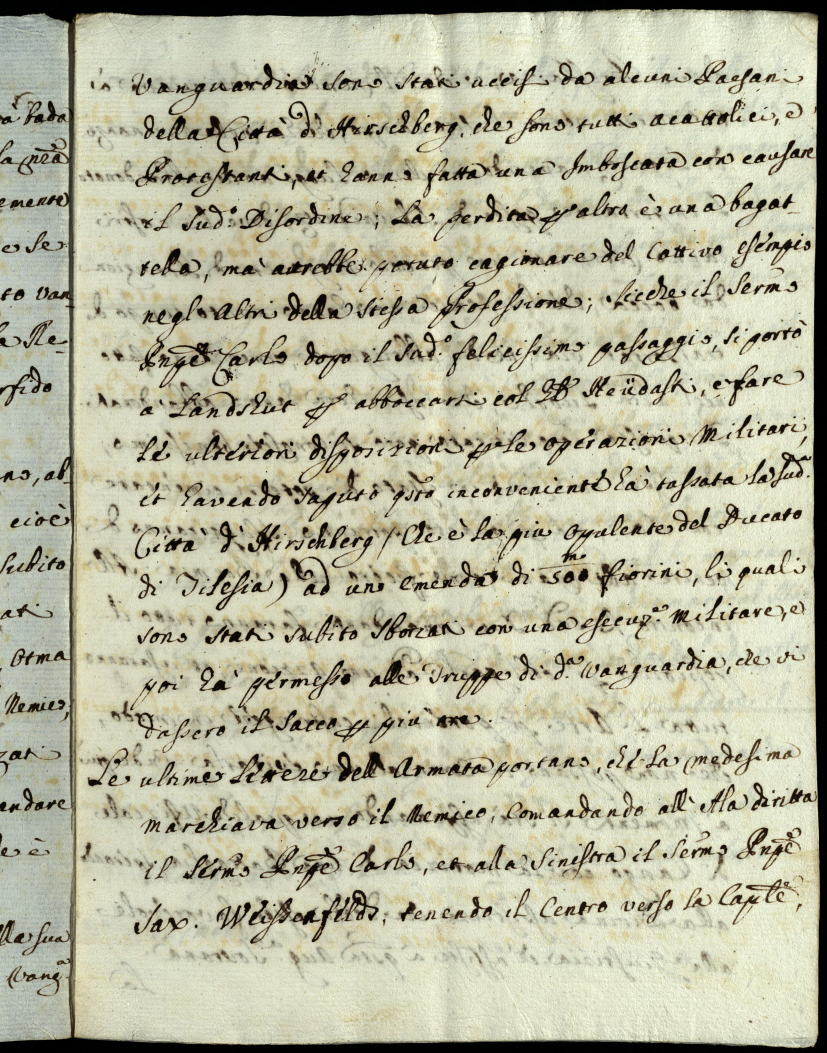 và bada
la nrã
emente
e Se-
to van-
la Re-
rfido
no, al-
cioè
Subito
ati
Otma
Nemico,
zati
endare
e è
lla sua
Vang.ª
Vanguardia sono stati uccisi da alcuni Paesani
della Città d' Hirschberg, che sono tutti acattolici, e
Protestanti, et hanno fatta una Imboscata con causare
il sud.º Disordine; La perdita p altro è una bagat-
tella, mà avrebbe potuto cagionare del Cattivo esempio
negl' Altri della stessa professione; sicche il Serm̃o
Pnpẽ Carlo dopo il sud.º felicissimo passaggio, si portò
à Landshut p abboccarsi col Nëüdasti, e fare
le ulteriori disposizioni p le operazioni Militari,
et havendo saputo qsto inconveniente hà tassata la sud.ª
Città d' Hirschberg (che è la piu Opulente del Ducato
di Silesia) ad una emenda di 500 m fiorini, li quali
sono stati subito sborzati con una esecuz.e Militare, e
poi hà permesso alle Truppe di d.ª Vanguardia, che vi
dassero il Sacco p piu ore.
Le ultime lettere dell' Armata portano, che la medesima
marchiava verso il Nemico, Comandando all' Ala diritta
il Serm̃o Pnpẽ Carlo, et alla Sinistra il Serm̃o Pnpẽ
Sax. Weissenfelds; tenendo il Centro verso la Caplẽ,